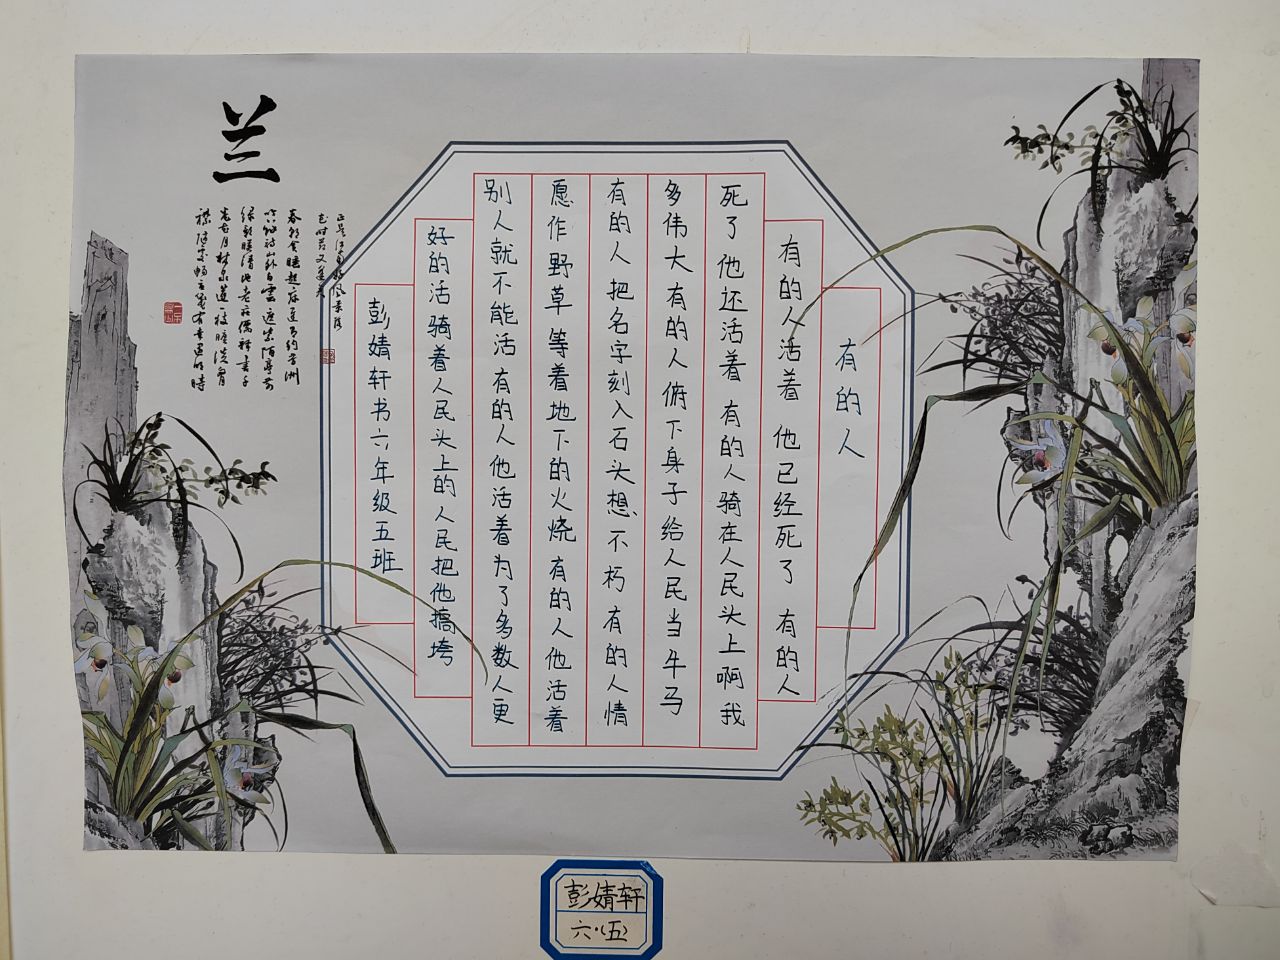 有的人
有的人活着 他已经死了 有的人
死了他还活着 有的人骑在人民头上啊我
多伟大有的人俯下身子给人民当牛马
有的人把名字刻入石头想不朽有的人情
愿作野草等着地下的火烧有的人他活着
别人就不能活有的人他活着为了多数人更
好的活骑着人民头上的人民把他搞垮
彭婧轩书六年级五班
兰
彭婧轩
六·(五)